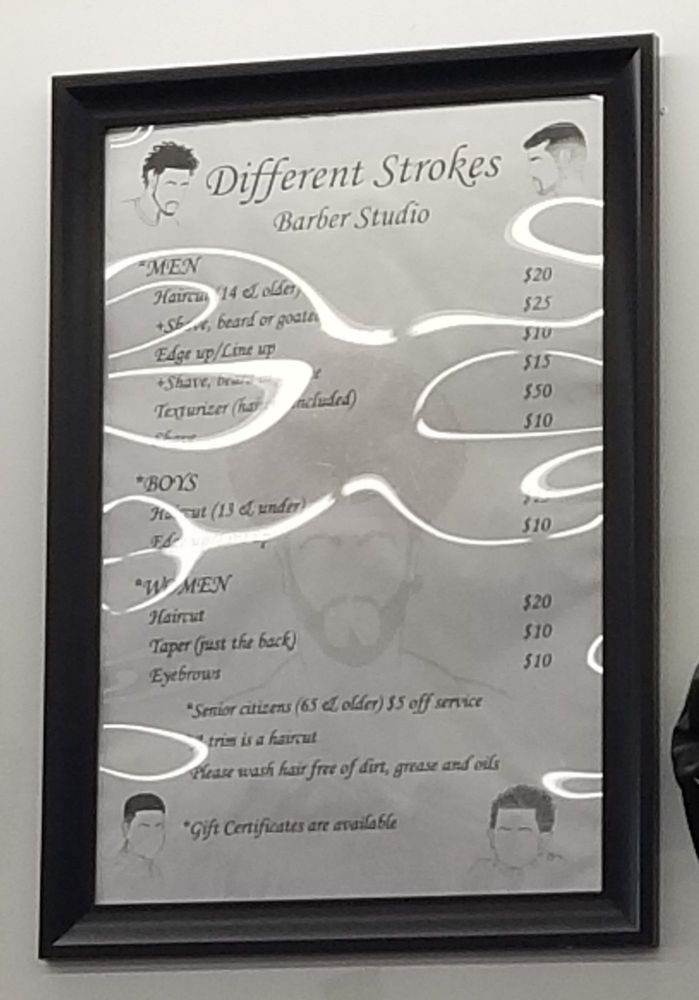 Different Strokes
Barber Studio
*MEN
Haircut (14 & older) $20
+Shave, beard or goatee $25
Edge up/Line up $10
+Shave, beard $15
Texturizer (hair included) $50
Shave $10
*BOYS
Haircut (13 & under)
Edge up/Line up $10
*WOMEN
Haircut $20
Taper (just the back) $10
Eyebrows $10
*Senior citizens (65 & older) $5 off service
trim is a haircut
Please wash hair free of dirt, grease and oils
*Gift Certificates are available